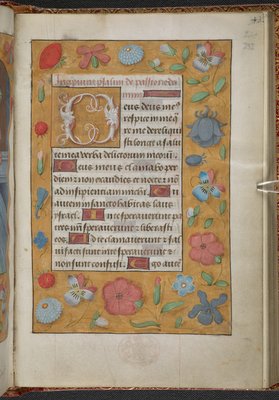 Incipiunt psalmi de passione do
mini
Deus deus me9
respice in me q
re me dereliqui
sti longe a salu
te mea verba delictorum meorū
Deus meus clamabo per
diem et non exaudies et nocte et nō
ad insipientiam michi Tu
autem in sancto habitas laus
israel In te speraverunt pa
tres nr̄i speraverunt et liberasti
eos Ad te clamaverunt et sal
vi facti sunt in te speraverunt et
non sunt confusi Ego autē